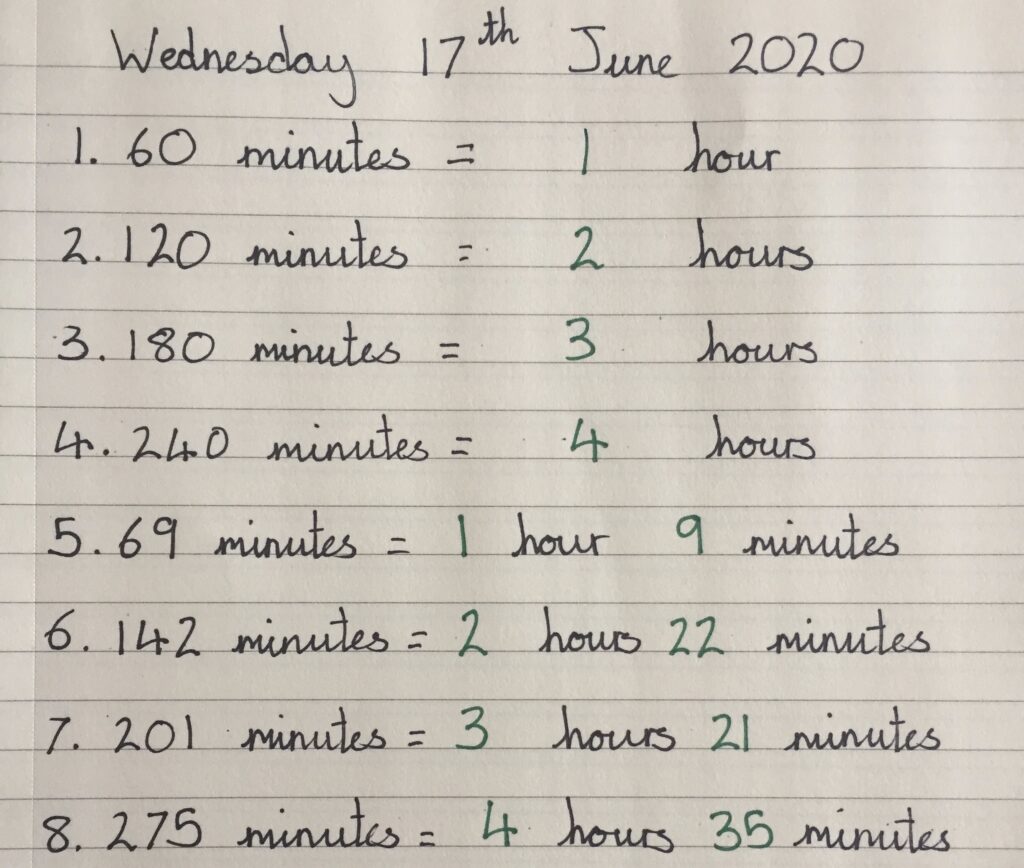 Wednesday 17th June 2020
1. 60 minutes = 1 hour
2. 120 minutes = 2 hours
3. 180 minutes = 3 hours
4. 240 minutes = 4 hours
5. 69 minutes = 1 hour 9 minutes
6. 142 minutes = 2 hours 22 minutes
7. 201 minutes = 3 hours 21 minutes
8. 275 minutes = 4 hours 35 minutes